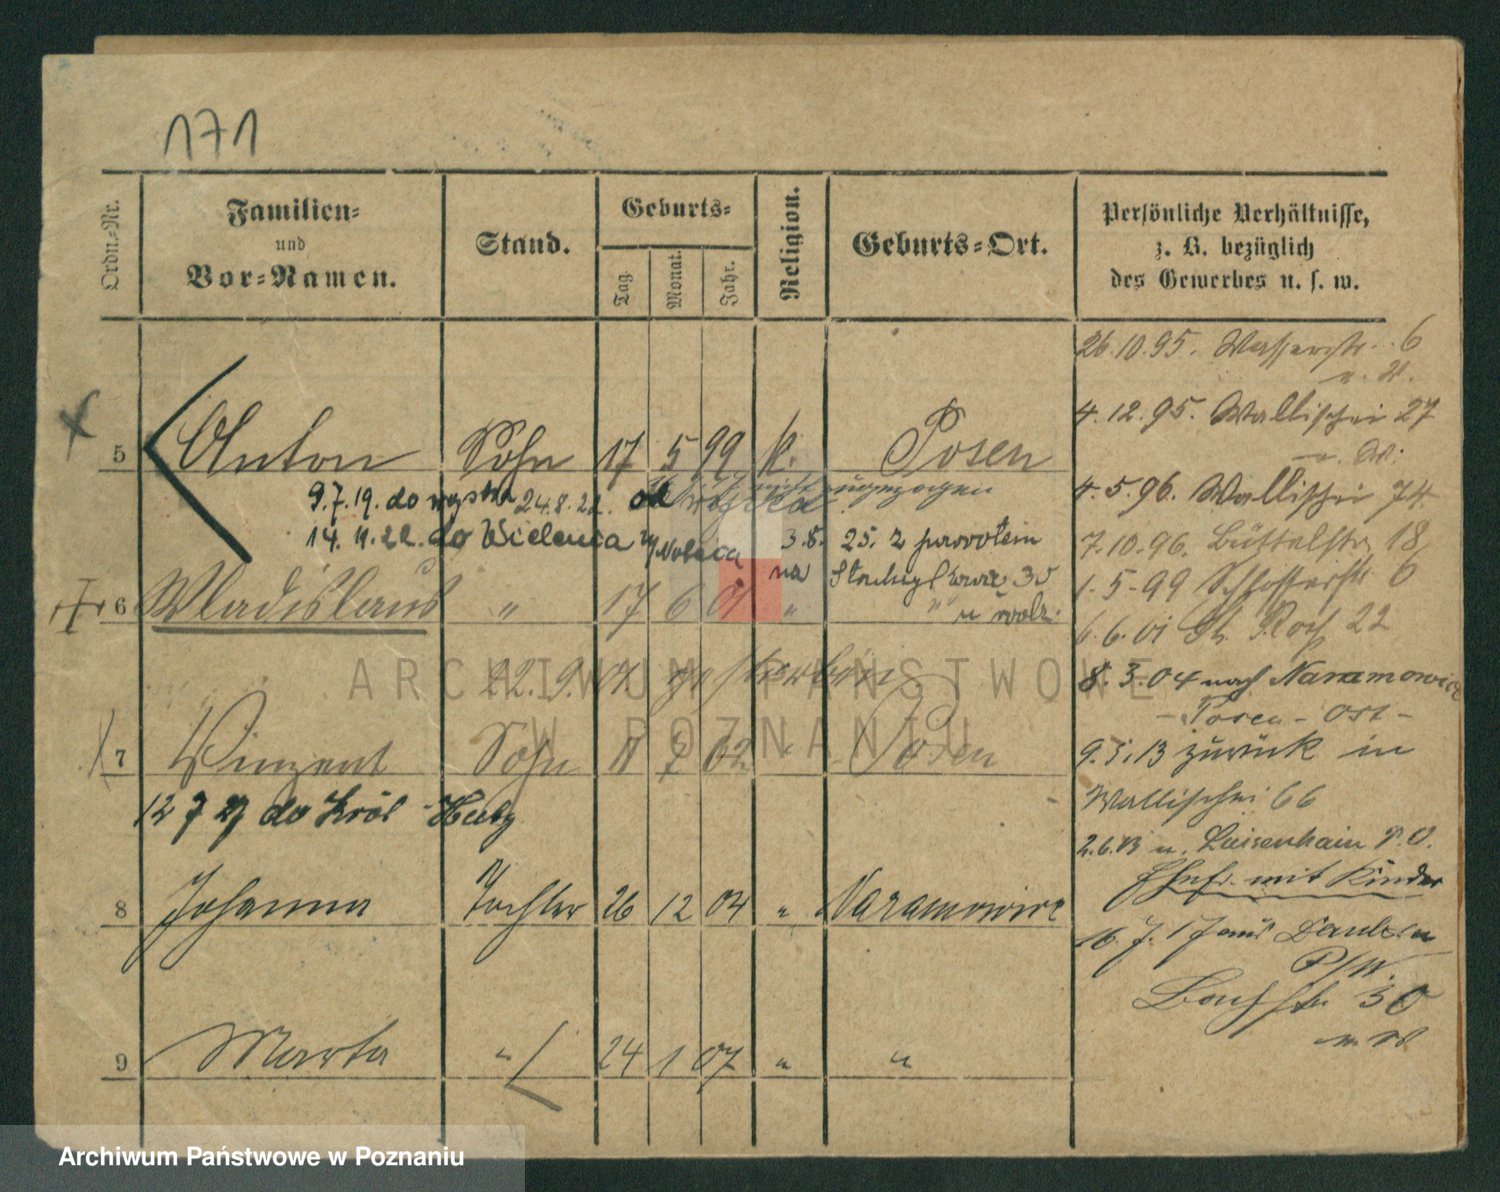 171
Ordn.-Nr.
Familien-
und
Vor-Namen.
Stand.
Geburts-
Tag.
Monat.
Jahr.
Religion.
Geburts-Ort.
Persönliche Verhältnisse,
z. B. bezüglich
des Gewerbes u. s. w.
26.10.95. Wasserstr. 6
u. W.
4.12.95. Wallischei 27
u. W.
5 Anton Sohn 17 5 99 k. Posen
4.5.96. Wallischei 74
9.7.19. do wojska 24.8.22. od
zugezogen
7.10.96. Büttelstr. 18
14.11.22. do Wielenia 3.5. 25. z powrotem
na 35
1.5.99 Schlosserstr. 6
6 Wladislaus " 17 6 01 " "
u
6.6.01 St. Roch 22
22.9.01 gestorben
8.3.04 nach Naramowice
- Posen - Ost -
7 Vinzent Sohn 11 7 02 " Posen
9.5.13 zurück in
Wallischei 66
12 7 27 do Król Huty
2.6.13 n. Luisenhain P.O.
Ehefr. mit Kinder
8 Johanna Tochter 26 12 04 " Naramowice
16.7.17 aus
P/W.
Bachstr. 30
u. W.
9 Marta " 24 1 07 " "
ARCHIWUM PAŃSTWOWE
W POZNANIU
Archiwum Państwowe w Poznaniu